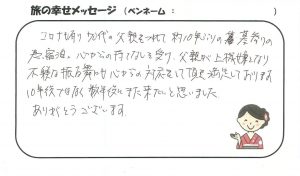 旅の幸せメッセージ（ペンネーム：　　　）
コロナも有り 90代の父親をつれて 約10年ぶりの 墓参りの
為 宿泊。心からの持てなしを受け、父親が上機嫌になり
不穏な振る舞いも 心からの対応をして頂き 満足しております。
10年後ではなく 数年後にまた来たいと思いました。
ありがとうございます。